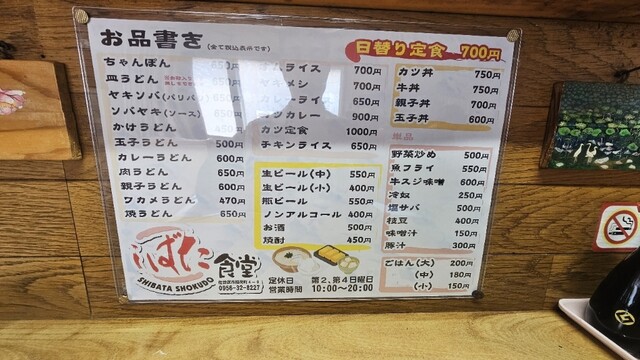 お品書き (全て税込表示です)
日替り定食 700円
ちゃんぽん 650円
皿うどん 650円
ヤキソバ(パリパリ)
ソバヤキ(ソース)
かけうどん
玉子うどん 500円
カレーうどん 600円
肉うどん 650円
親子うどん 600円
ワカメうどん 470円
焼うどん 650円
ライス 700円
700円
カレーライス 650円
カツカレー 900円
カツ定食 1000円
チキンライス 650円
生ビール(中) 550円
生ビール(小) 400円
瓶ビール 550円
ノンアルコール 400円
お酒 500円
焼酎 450円
カツ丼 750円
牛丼 750円
親子丼 700円
玉子丼 600円
野菜炒め 500円
魚フライ 550円
牛スジ味噌 600円
冷奴 250円
塩サバ 500円
枝豆 400円
味噌汁 150円
豚汁 300円
ごはん(大) 200円
(中) 180円
(小) 150円
しばた食堂
SHIBATA SHOKUDO
0956-32-8227
定休日 第2、第4日曜日
営業時間 10:00~20:00